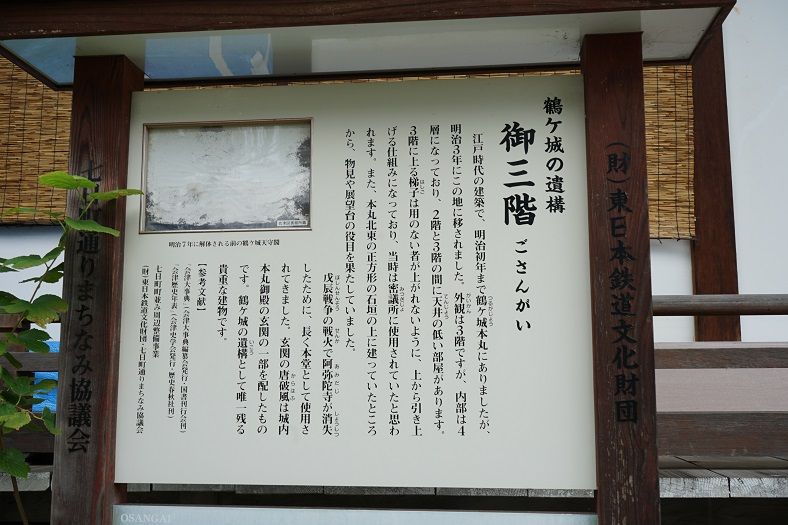 (財)東日本鉄道文化財団
鶴ケ城の遺構
御三階 ごさんがい
江戸時代の建築で、明治初年まで鶴ケ城本丸にありましたが、
明治3年にこの地に移されました。外観は3階ですが、内部は4
層になっており、2階と3階の間に天井の低い部屋があります。
3階に上る梯子は用のない者が上がれないように、上から引き上
げる仕組みになっており、当時は密議所に使用されていたと思わ
れます。また、本丸北東の正方形の石垣の上に建っていたところ
から、物見や展望台の役目を果たしていました。
戊辰戦争の戦火で阿弥陀寺が消失
したために、長く本堂として使用さ
れてきました。玄関の唐破風は城内
本丸御殿の玄関の一部を配したもの
です。鶴ケ城の遺構として唯一残る
貴重な建物です。
【参考文献】
「会津大事典」(会津大事典編纂会発行・国書刊行会刊)
「会津歴史年表」(会津史学会発行・歴史春秋社刊)
七日町町並み周辺整備事業
(財)東日本鉄道文化財団・七日町通りまちなみ協議会
明治7年に解体される前の鶴ケ城天守閣
七日町通りまちなみ協議会
OSANGAI